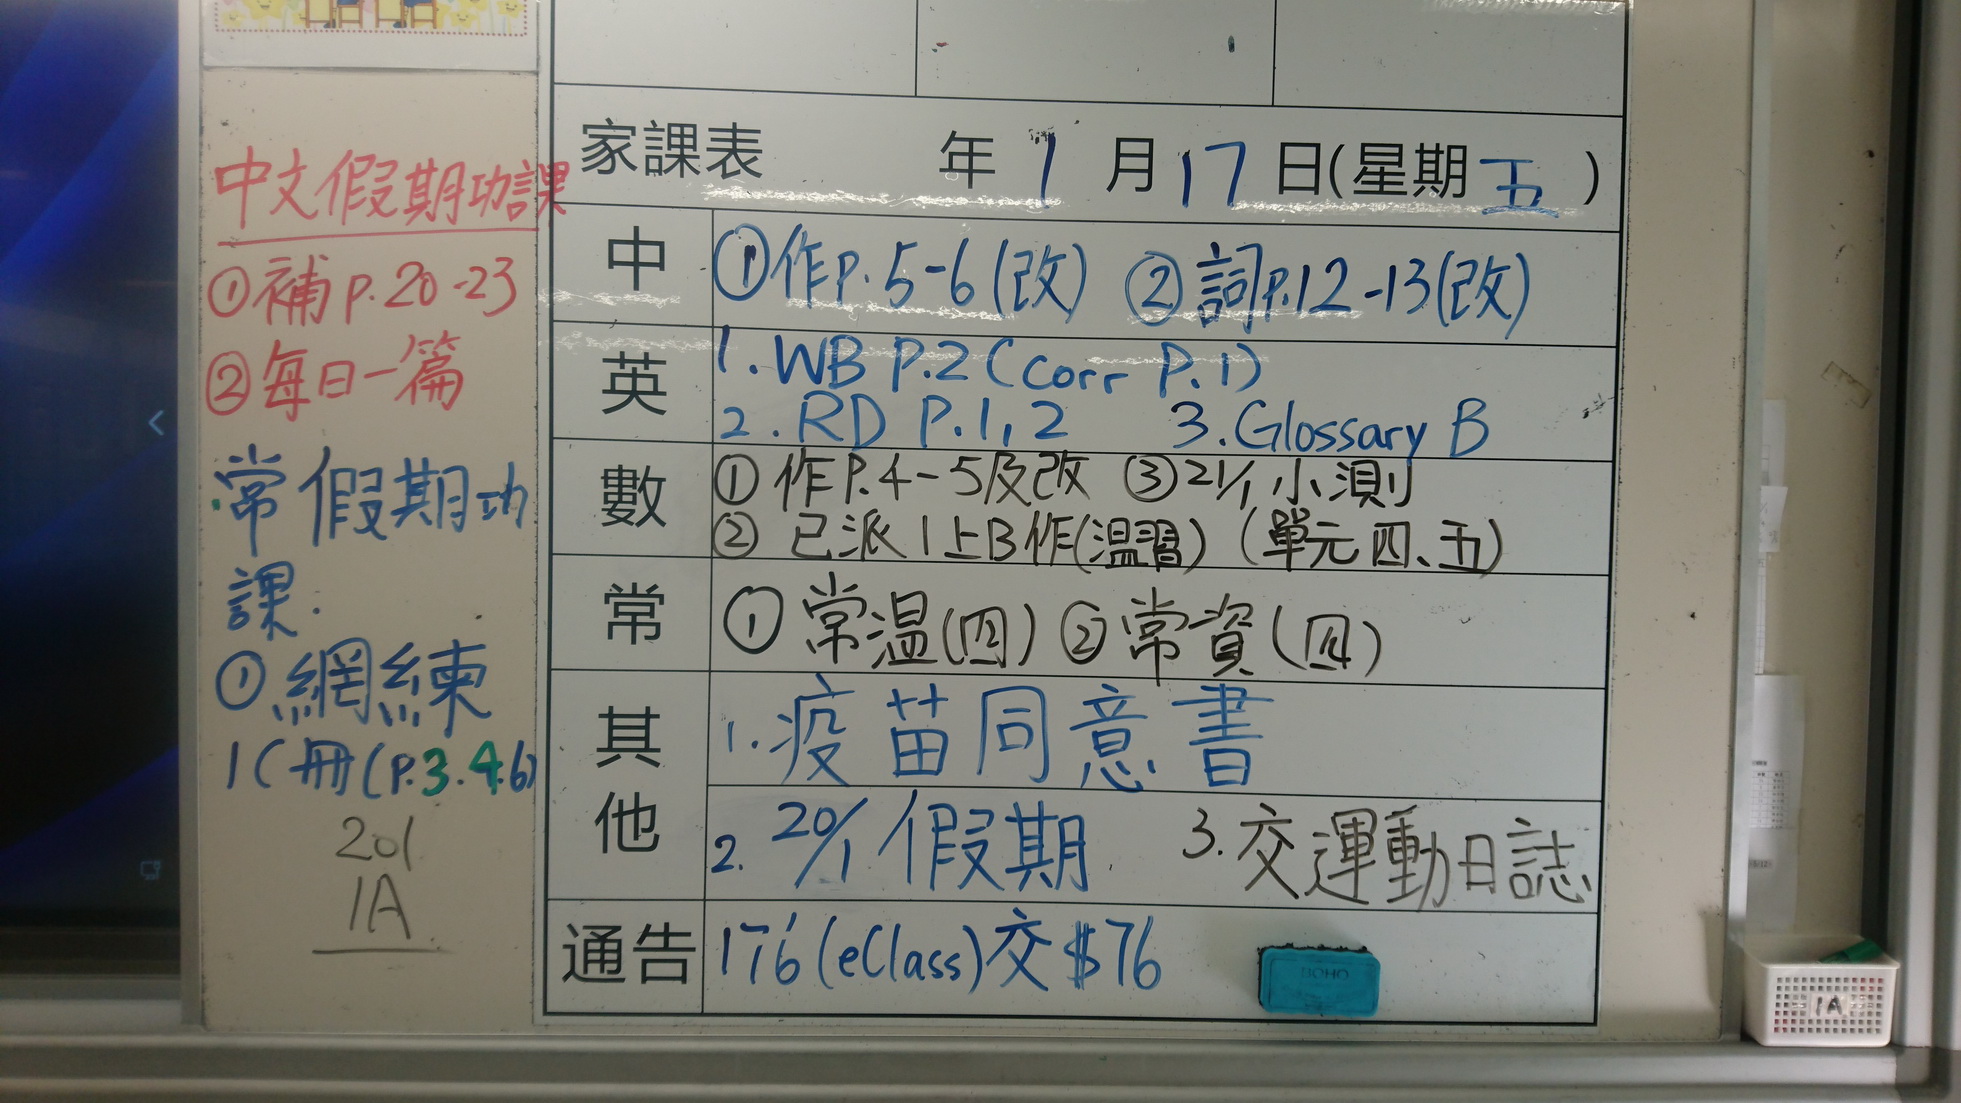 中文假期功課
①補p.20-23
②每日一篇
常假期功
課:
①網練
1C冊(P.3.4.6)
201
1A
家課表 年1月17日(星期五)
中 ①作P.5-6(改) ②詞P.12-13(改)
英 1.WB P.2(Corr P.1)
2.RD P.1,2 3.Glossary B
數 ①作P.4-5及改 ③21/1小測
②已派1上B作(溫習) (單元四、五)
常 ①常溫(四) ②常資(四)
其他 1.疫苗同意書
2. 20/1假期 3.交運動日誌
通告 176(eClass)交$76
1A